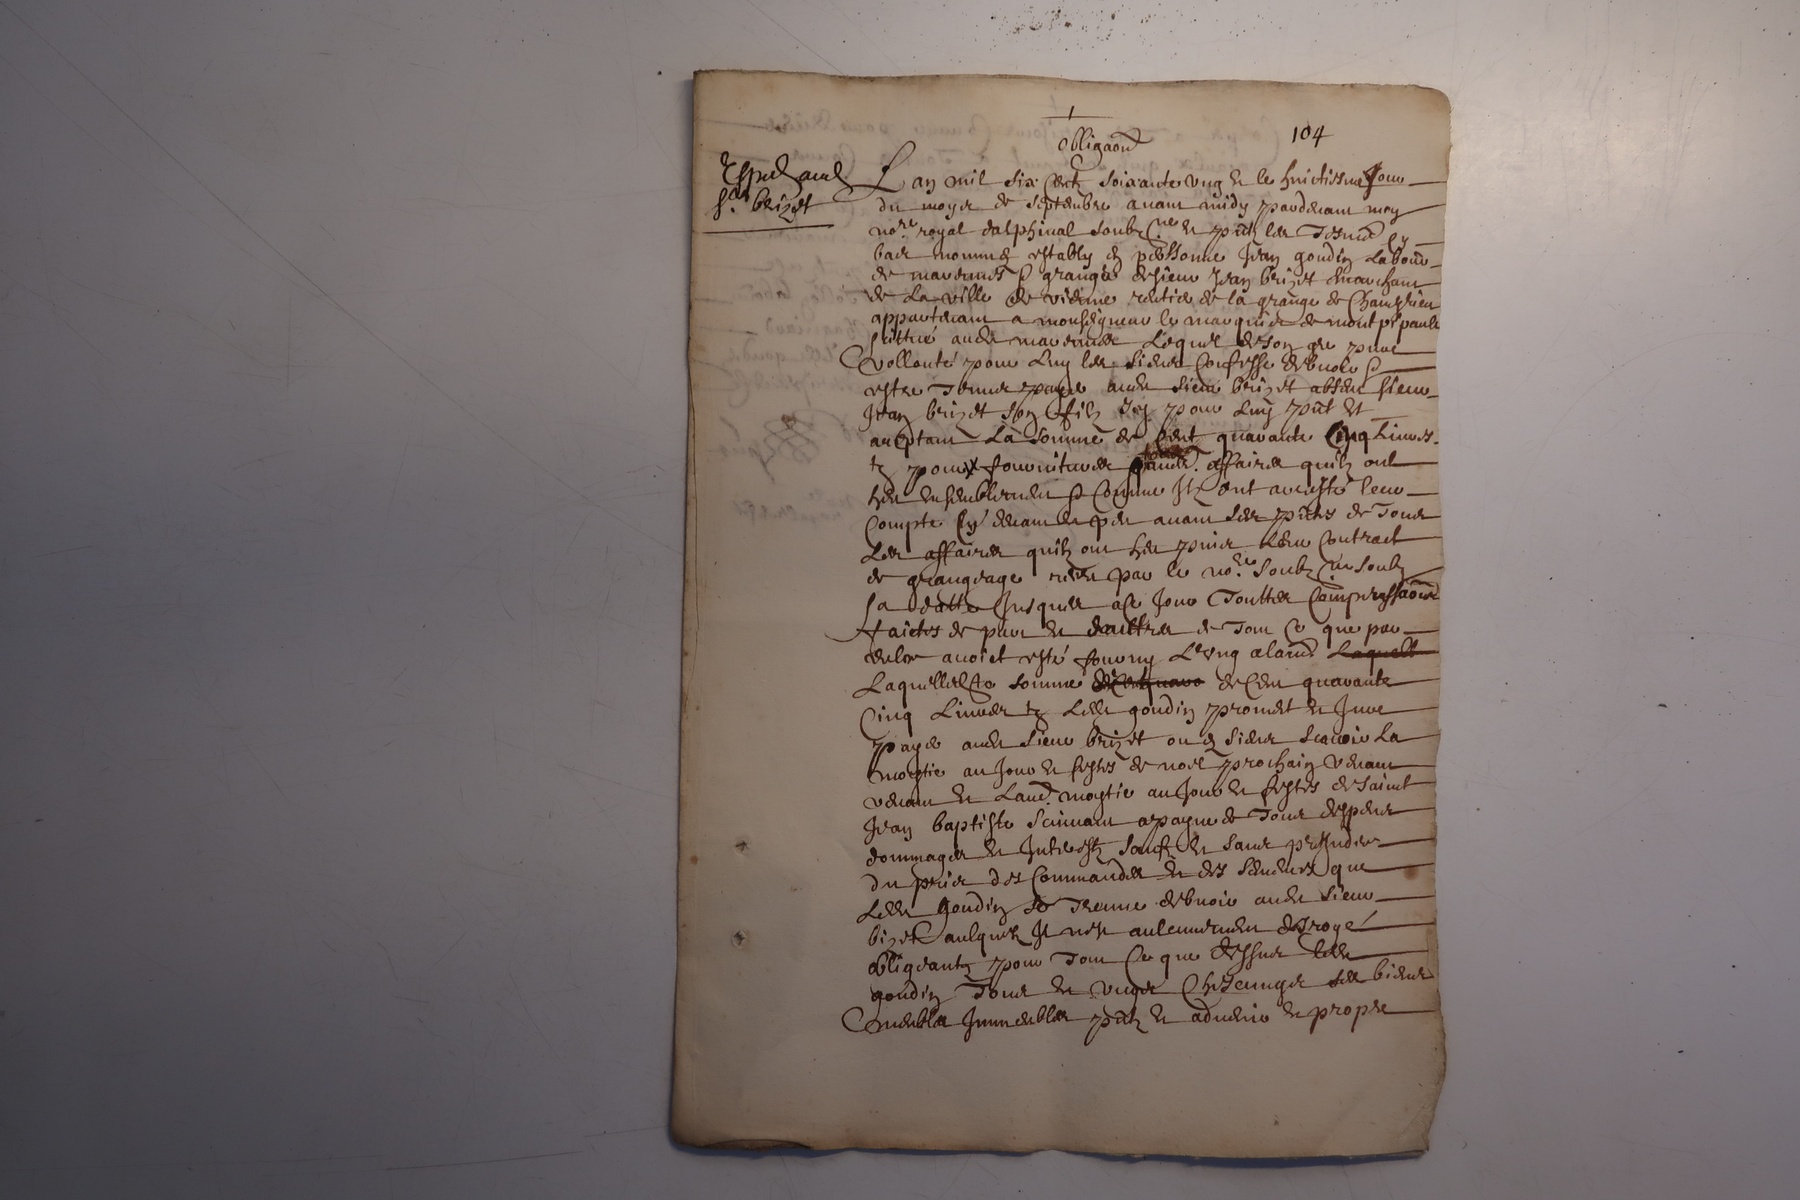 1
obligaon
104
Expedié aud
sr brizet
Lan mil six cent soixante ung et le huictiesme Jour
du moys de septembre avant midy pardevant moy
nore royal dalphinal soubzne et pnts les tesmoins cy
bas nommez estably en personne Jean goudin Laboure
de granger de sieur Jean brizet marchant
de La ville de vienne rentier de la grange de
appartenant a monseigneur le marquis de
scittué aud Lequel de son gre pure
vollonté pour Luy les siens Confesse debvoir
estre tenu payer aud sieur brizet absent sieur
Jean brizet son filz Icy pour Luy pnt et
acceptant La somme de Cent quarante Cinq Livres
tz pour fournitures affaires quilz ont
heu ensemblement Comme Ilz ont arresté leur
Compte Cy devant et peu avant ses pntes de tous
Les affaires quilz ont heu puis Leur Contract
de grangeage receu par le nore soubzne soubz
sa datte Jusques a ce Jour touttes Compensaons
faictes de part et daultre de tout Ce que par
avoict esté fourny Lung a laud Laquelle
Laquelle somme de Cent quara de Cent quarante
Cinq Livres tz Led goudin promet et Jure
payer aud sieur brizet ou es siens scavoir La
moytie au Jour et festes de noel prochain venant
venant et Laud moytie au Jour et festes de saint
Jean baptiste suivant a payne de tous despens
dommages et Interestz sauf et sans preJudice
du prier des Commandes et des que
Led goudin se treuve debvoir aud sieur
bizet ausquelz Il nest aulcunement desrogé
obligeantz pour tout Ce que dessus led
goudin tous et ungs Chescungs ses biens
meubles Immeubles pntz et advenir et propre